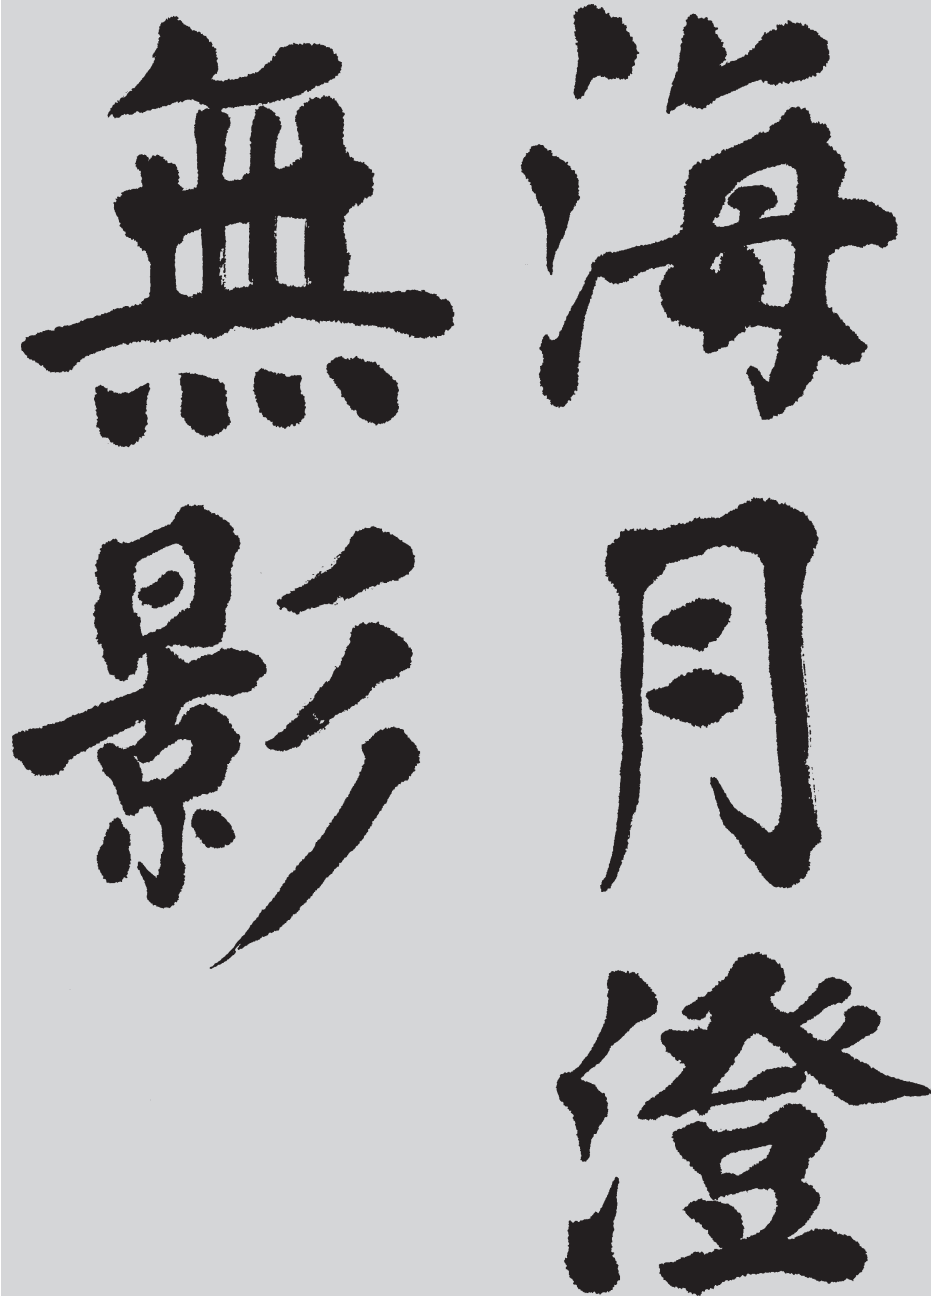 海月澄
無影